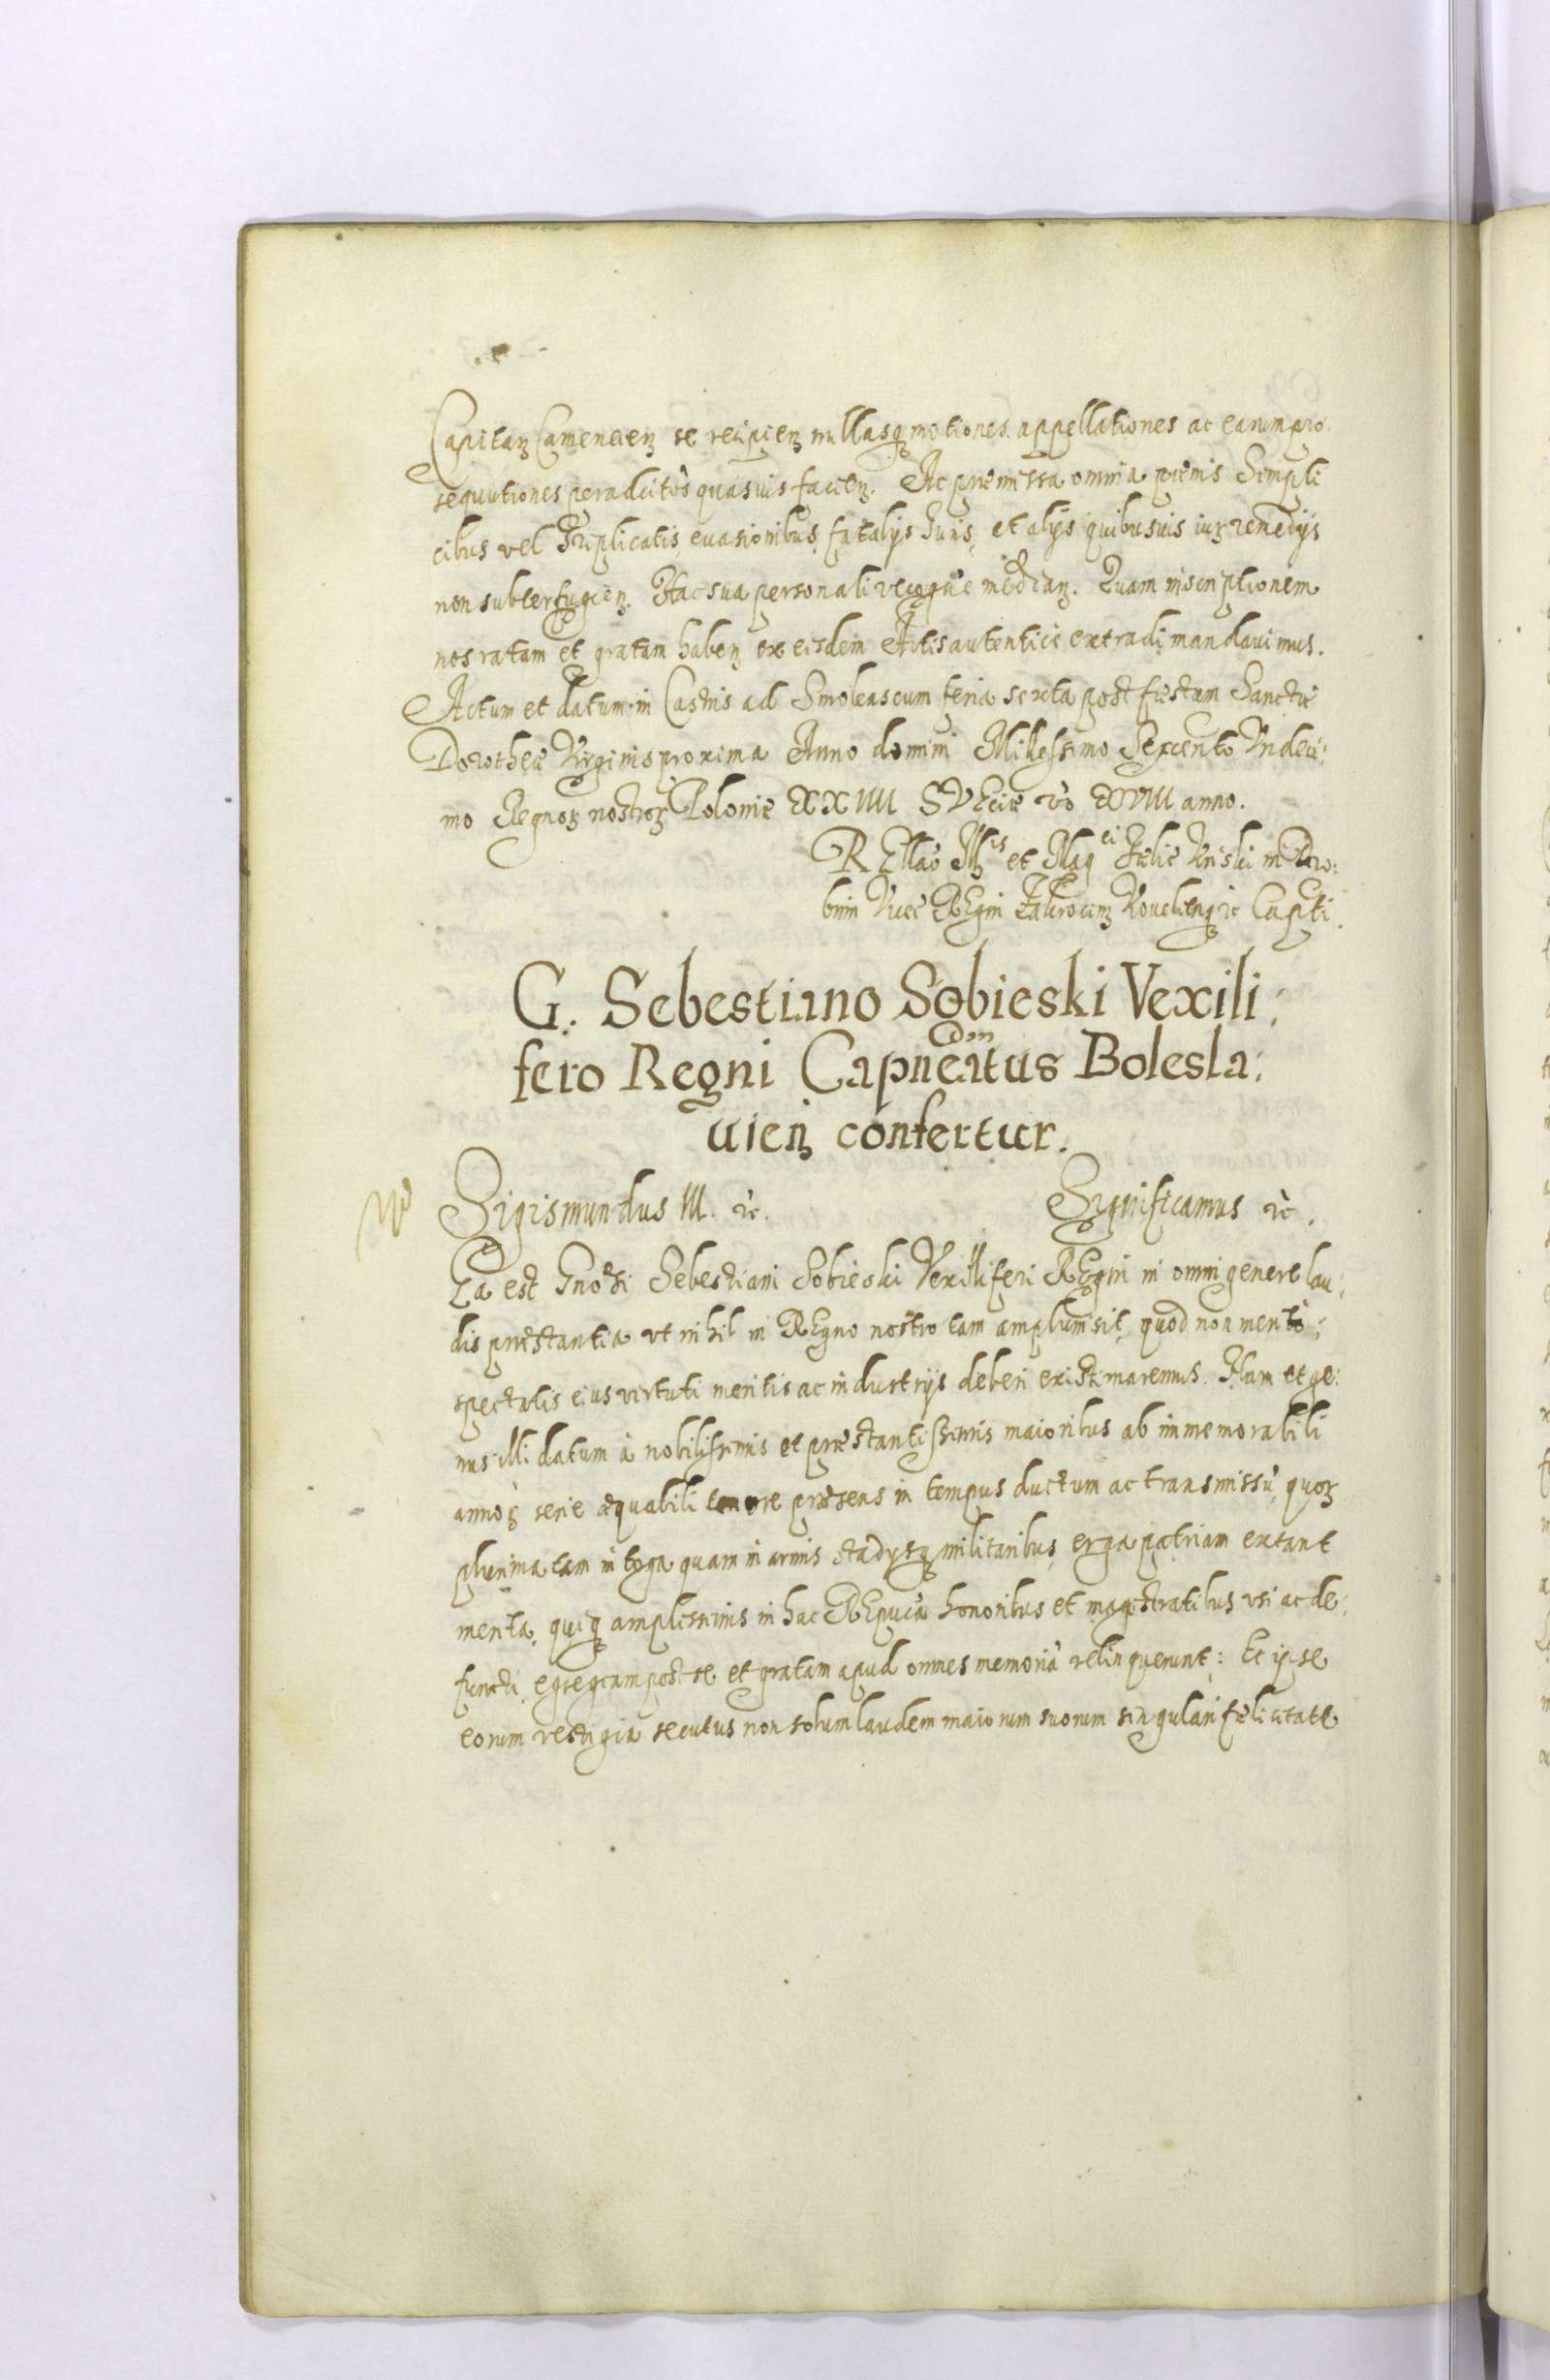 Capitaꝝ Camenecieꝝ se recipieꝝ nullasqꝫ motiones appellationes ac earum pro
sequutiones peradcitos quasuis facieꝝ. Ac premissa omnia premis Simpli
cibus vel Triplicatis euasionibus, fatalijs Juris, et alijs quibusuis iurꝫ remedijs
non subterfugieꝝ. Hac sua personali recogne mediaꝝ. Quam inscriptionem
nos ratam et gratam habeꝝ ex eisdem Actis autentice extradi mandauimus.
Actum et datum in Castris ad Smolenscum feria sexta post festum Sanctæ
Dorotheæ Virginis proxima Anno domini Millessimo Sexcento Vndeci:
mo Regnoꝝ nostroꝝ Poloniæ XXIIII SVEciæ vo XVIII anno.
REllao Illis et Magci Felicis Kriski in Dro:
bnin Vice REgni Cap̃ti
G. Sebestiano Sobieski Vexili:
fero Regni Capneatus Bolesla:
uieꝝ confertur.
Sigismundus III. ꝛc. Significamus ꝛc.
Ea est Gnosi Sebestiani Sobieski Vexilliferi REgni in omni genere lau:
dis præstantia vt nihil in REgno nostro tam amplum sit, quod non merito:
spectatis eius virtuti meritis ac industrijs deberi existimaremus. Nam et ge:
nus illi datum à nobilissimis et præstantissimis maioribus ab immemorabili
annoꝝ serie æquabili tenore præsens in tempus ductum ac transmissũ, quoꝝ
plurima tam in toga quam in armis stadysqꝫ militaribus, erga patriam extant
merita, quiqꝫ amplissimis in hac REpuca honoribus et magistratibus vsi ac de:
functi, egregiam post se et gratam apud omnes memoriã relinquerunt: Et ipse
eorum vestigia secutus non solum laudem maiorum suorum singulari fælicitate